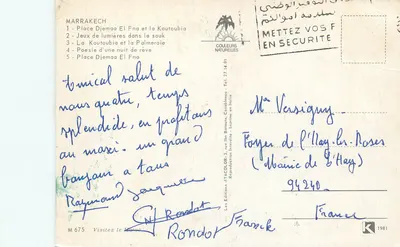 MARRAKECH
1 - Place Djemaa El Fna et la Koutoubia
2 - Jeux de lumières dans le souk
3 - La Koutoubia et la Palmeraie
4 - Poésie d'une nuit de rêve
5 - Place Djemaa El Fna
COULEURS
NATURELLES
METTEZ VOS F
EN SECURITE
Amical salut de
nous quatre, temps
splendide, en profitons
au maxi. un grand
bonjour a tous
Raymond Jacqueline
Rondot
Rondot Franck
Mme Versigny
Foyer de l'Hay-les-Roses
(Mairie de l'Hay)
94240
France
M 675
K 1981